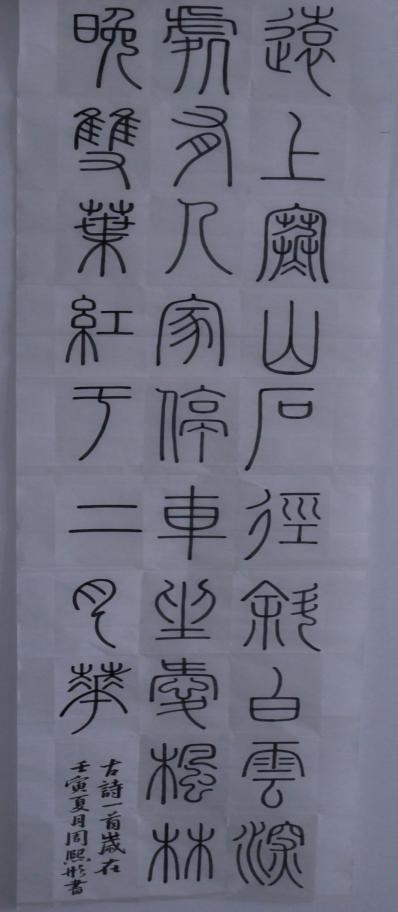 遠上寒山石徑斜白雲深
處有人家停車坐愛楓林
晚雙葉紅于二月華
古詩一首歲在
壬寅夏月周熙彤書